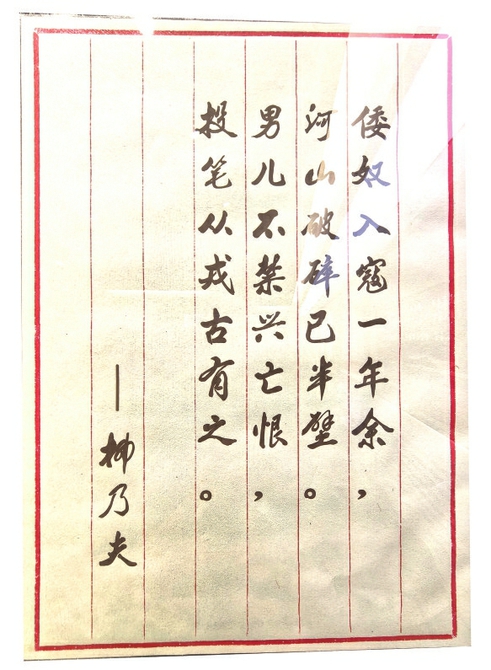 倭奴入寇一年余，
河山破碎已半壁。
男儿不禁兴亡恨，
投笔从戎古有之。
—柳乃夫